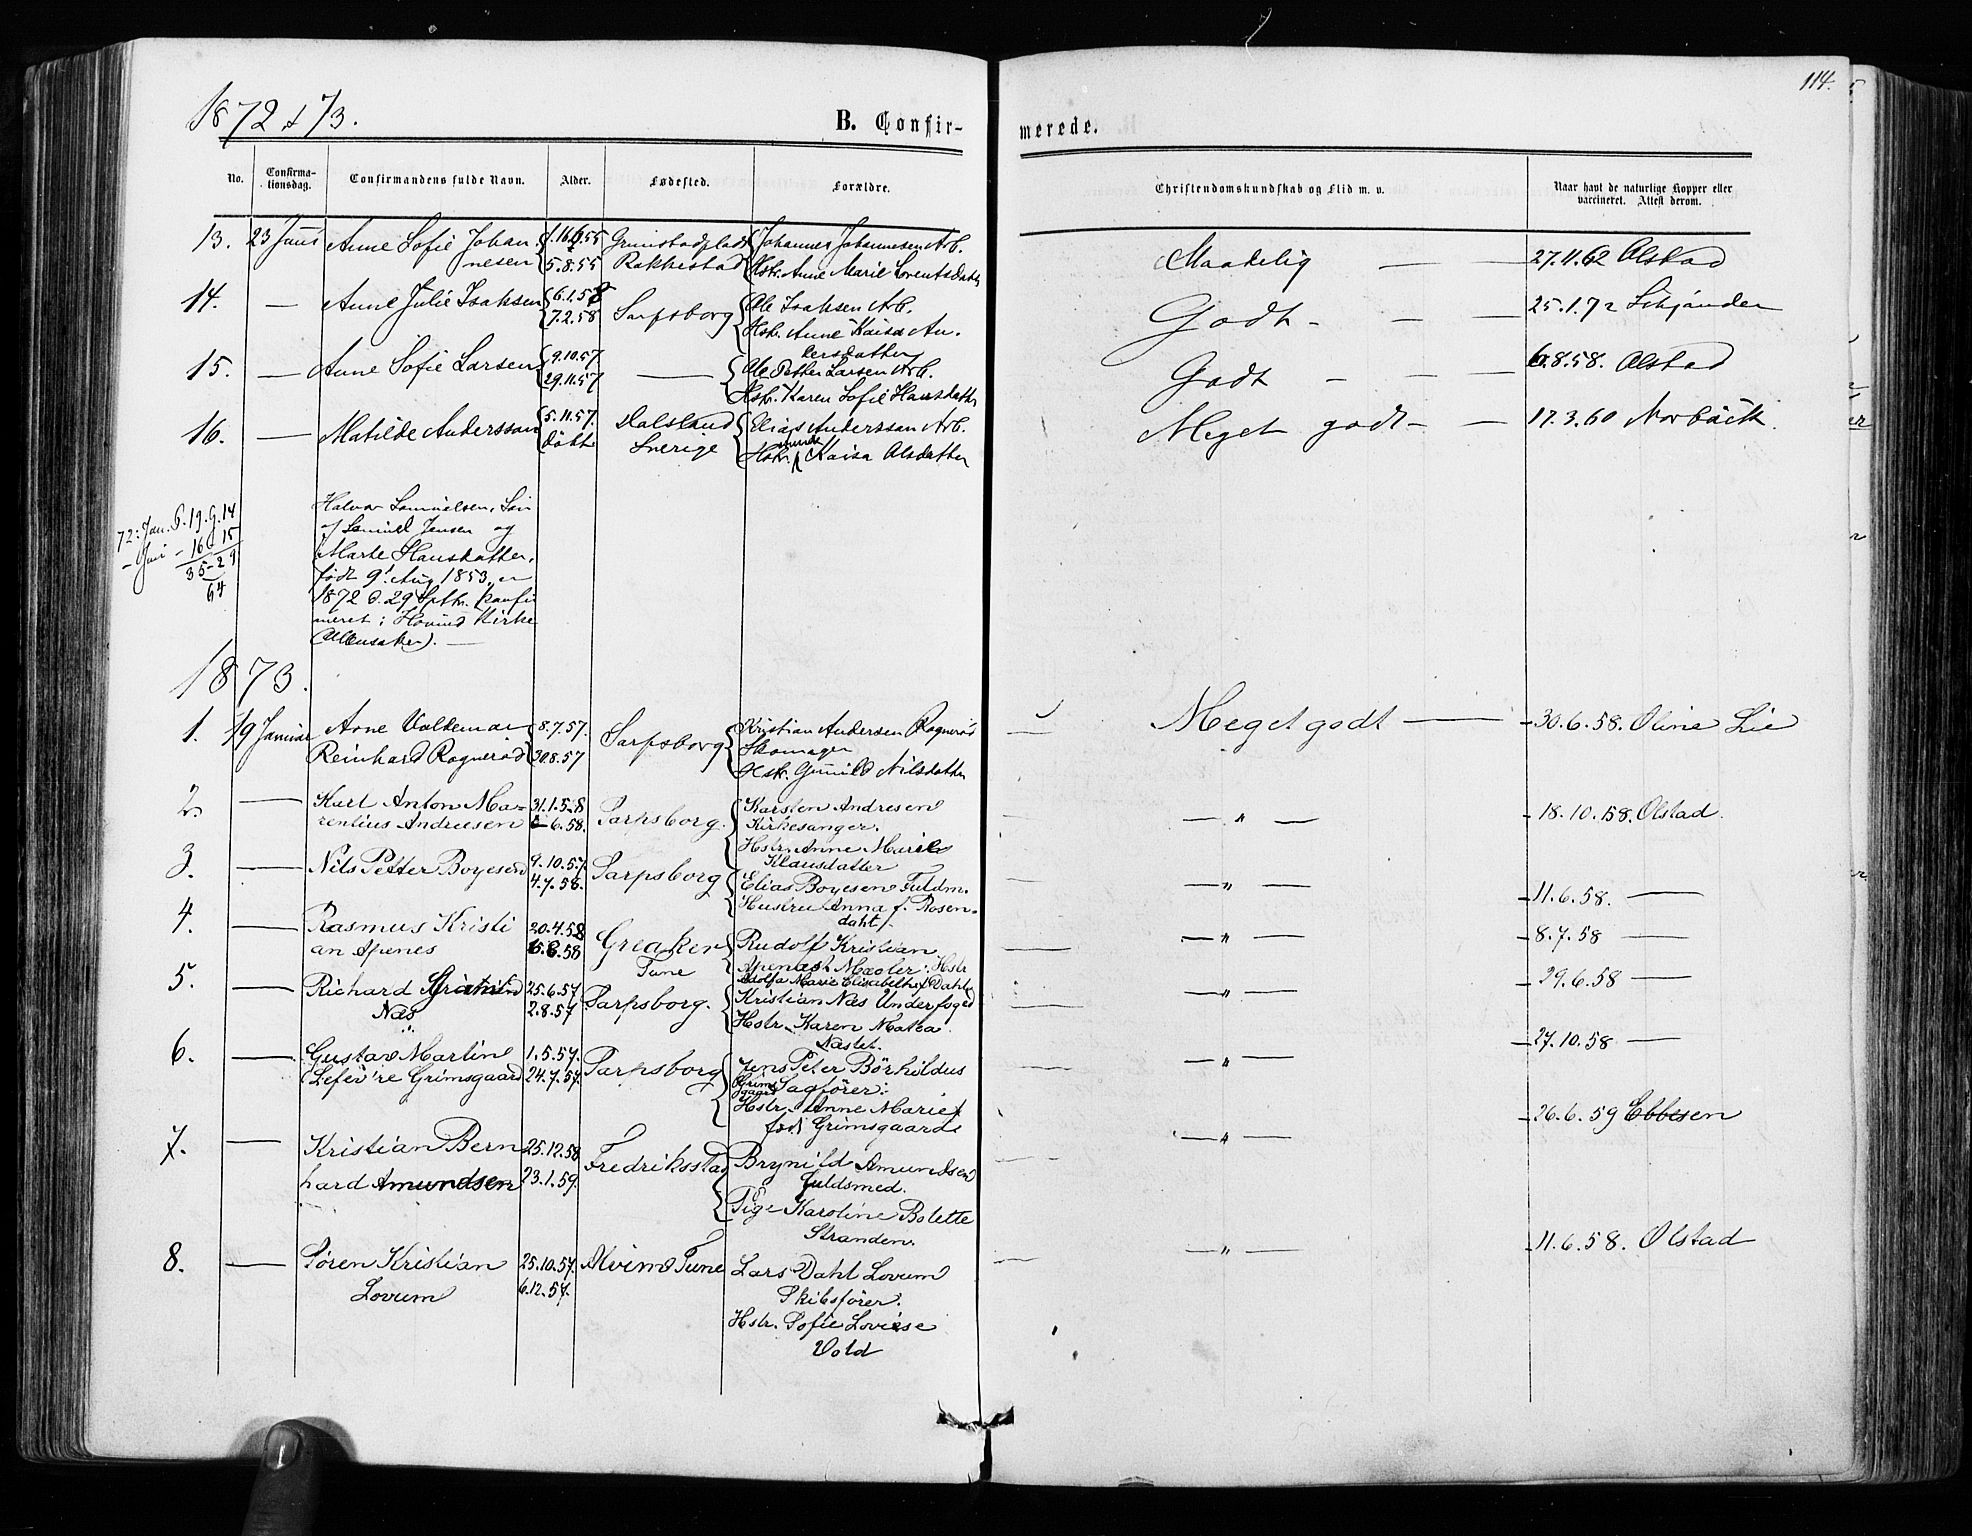 114.
1872 & 73.
B. Confir-
merede.
No.
Confirma-
tionsdag.
Confirmandens fulde Navn.
Alder.
Fødested.
Forældre.
Christendomskundskab og Flid m. v.
Naar havt de naturlige Kopper eller
vaccineret. Attest derom.
13. 23 Juni Anne Sofie Johan 55 Grimstadplads Johannes Johannesen Arb.
nesen 5.8.55 Rakkestad Hstr. Anne Marie Lorentsdatter
Maadelig — — 27.11.62 Olstad
14. — Anne Julie Isaksen 6.1.58 Sarpsborg Ole Isaksen Arb.
7.2.58 Hstr. Anne Kaisa An-
dersdatter
Godt - — — 25.1.72
15. — Anne Sofie Larsen 9.10.57. — Ole Petter Larsen Arb.
29.11.57 Hstr. Karen Sofie Hansdatter
Godt — — — 6.8.58. Olstad
16. — Matilde Anderssan 5.11.57. Dalsland Elias Anderssan Arb.
døbt Sverige Hstr. Kaisa Olsdatter
Meget godt - — 17.3.60 Norbäck.
72: Jan. 19. G. 14
- Juni - 16 15
35-29
64
Halvor Samuelsen, Søn
af Samuel Jensen og
Marte Hansdatter,
født 9. Aug 1853, er
1872 d. 29 Septbr. konfir
meret i Hovind Kirke
(Ullensaker). —
1873.
1. 19 Januar Arne Valdemar 8.7.57. Sarpsborg Kristian Andersen Rognerød
Reinhard Rognerød 30.8.57 Skomager
Hstr. Gunild Nilsdatter
Meget godt — 30.6.58. Oline Lie
2. — Karl Anton Ma- 31.1.58 Sarpsborg. Karsten Andresen
rentius Andresen 6.58. Kirkesanger.
Hstr. Anne Marie
Klausdatter
— „ — 18.10.58. Olstad.
3. — Nils Petter Boyesen 9.10.57. Sarpsborg Elias Boyesen Fuldm.
4.7.58. Hustru Anna f. Rosen-
dahl.
— „ — 11.6.58. —
4. — Rasmus Kristi 20.4.58 Greaker Rudolf Kristian
an Apenes 6.58 Tune Apenæs Mægler: Hstr
Adolfa Marie Elisabeth f. Dahl
— „ — 8.7.58 —
5. — Richard 25.6.57 Sarpsborg. Kristian Næs Underfoged
Næs 2.8.57 Hstr. Karen Matea
Næstet.
— „ — 29.6.58 —
6. — Gustav Martin 1.5.57. Sarpsborg Jens Peter Børhildus
Lefév're Grimsgaard 24.7.57. Grims
gaard Sagfører:
Hstr. Anne Marie
født Grimsgaard
— „ — 27.10.58 —
7. — Kristian Bern 25.12.58 Fredriksstad Brynild Amundsen
hard Amundsen 23.1.59. Guldsmed.
Pige Karoline Bolette
Stranden.
— „ — 26.6.59 Ebbesen
8. — Søren Kristian 25.10.57. Alvim Tune Lars Dahl Lovum
Lovum 6.12.57. Skibsfører.
Hstr. Sofie Loviese
Vold
— „ — 11.6.58. Olstad